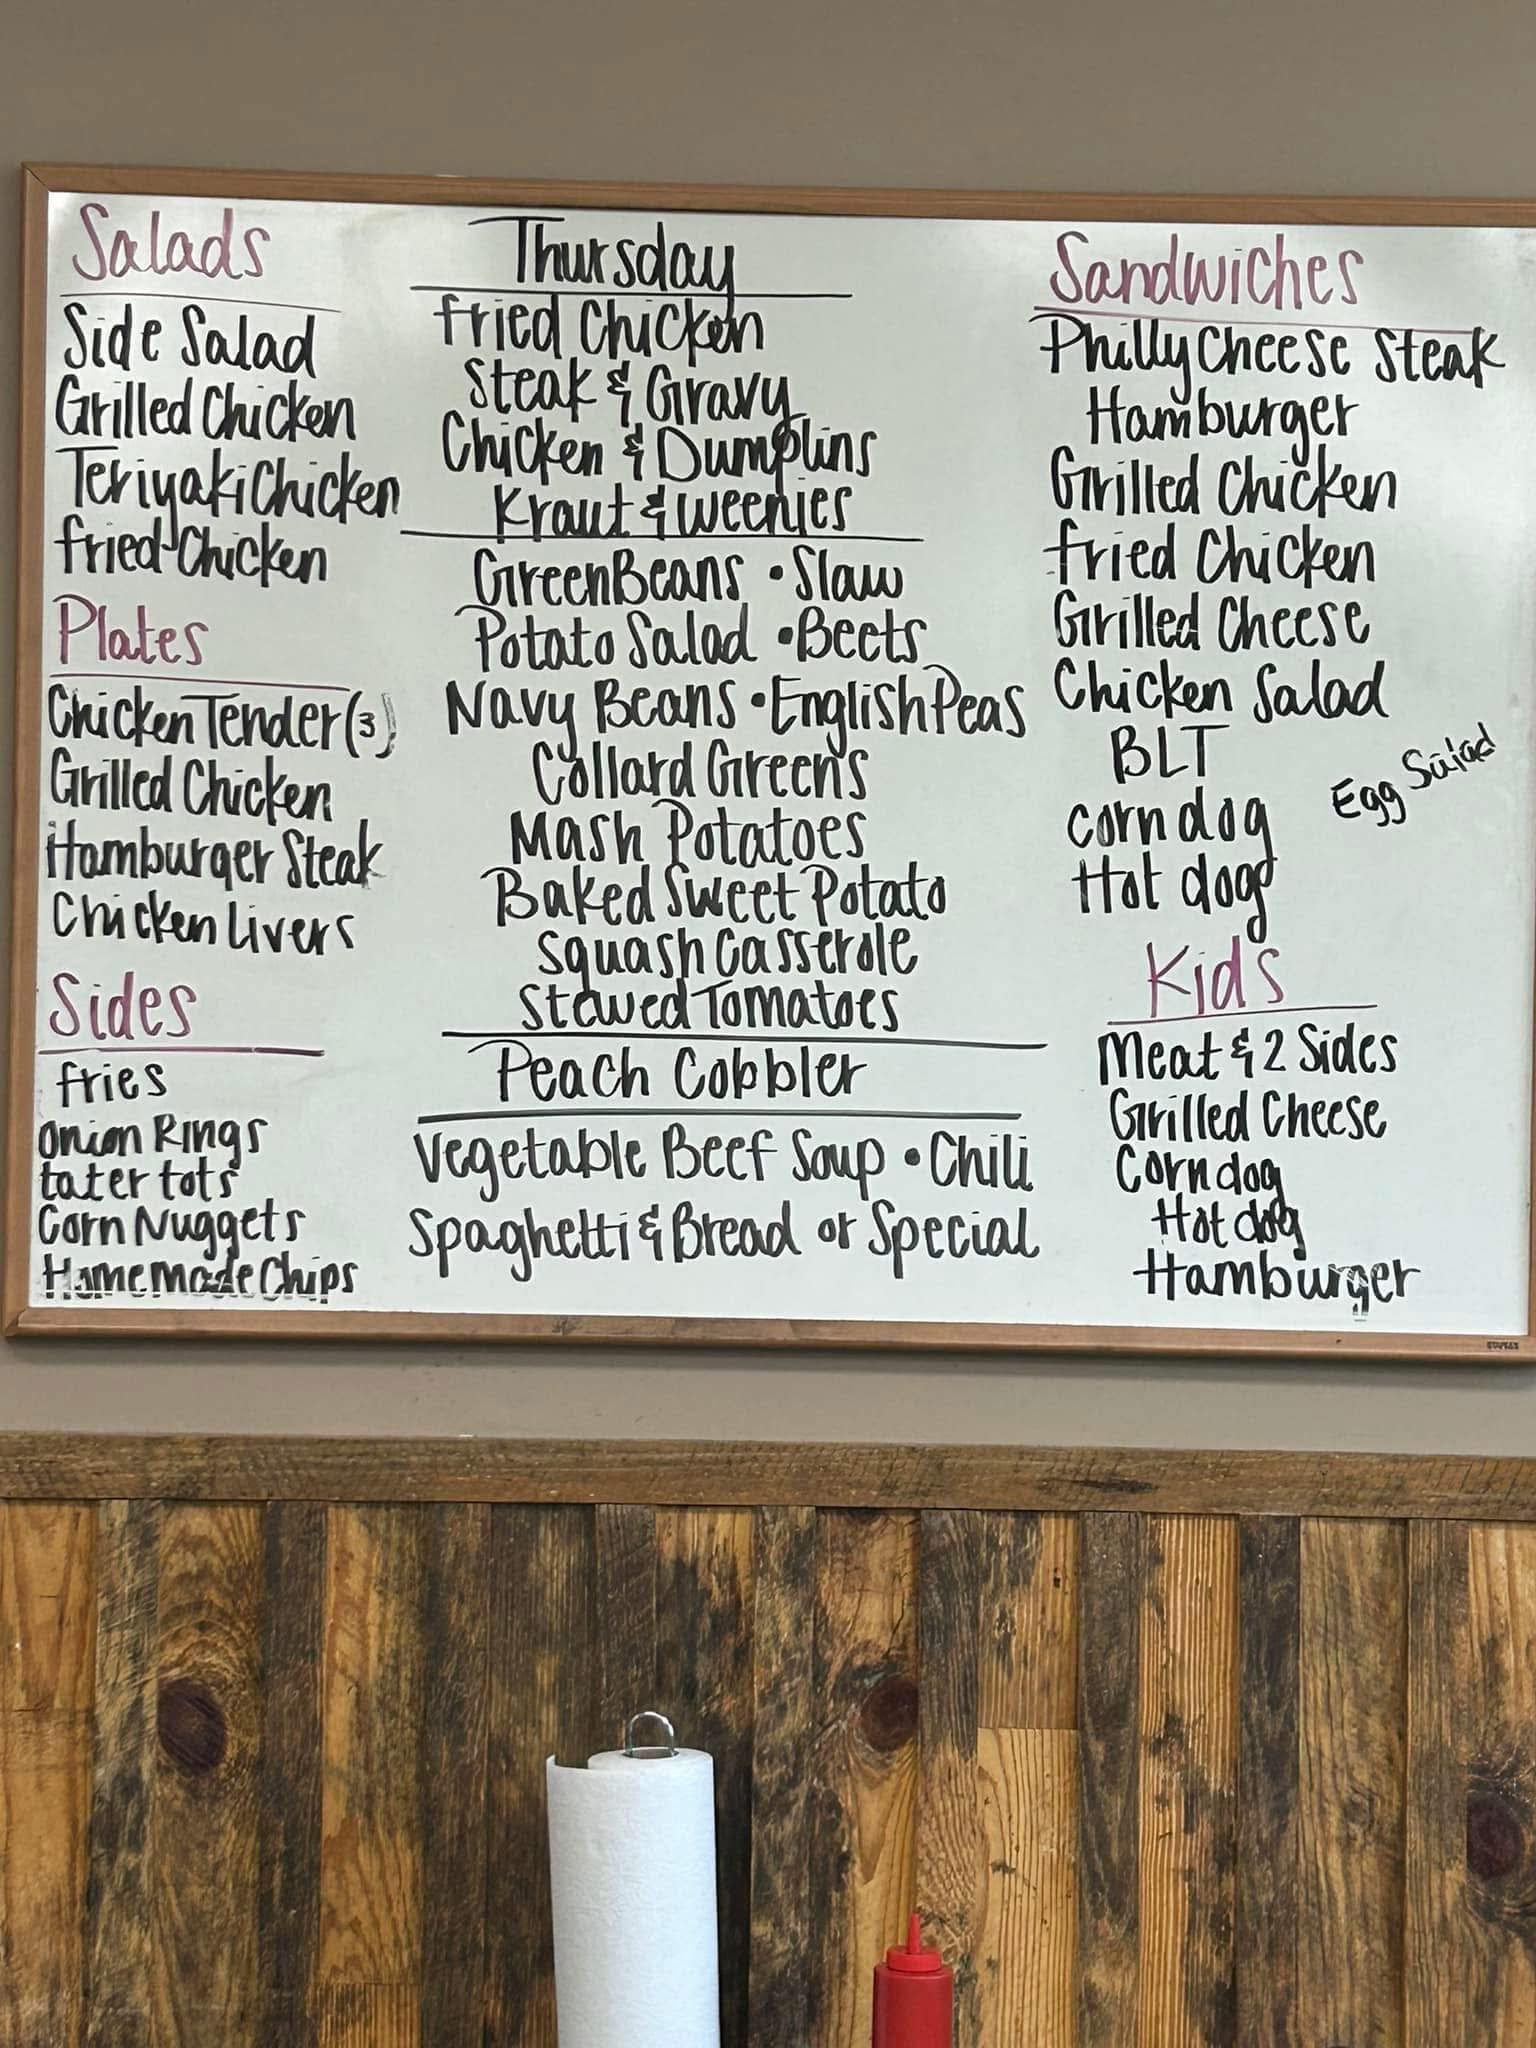 Salads
Side Salad
Grilled Chicken
Teriyaki Chicken
Fried Chicken
Plates
Chicken Tender (3)
Grilled Chicken
Hamburger Steak
Chicken Livers
Sides
Fries
Onion Rings
tater tots
Corn Nuggets
Homemade Chips
Thursday
Fried Chicken
Steak & Gravy
Chicken & Dumplins
Kraut & weenies
Green Beans • Slaw
Potato Salad • Beets
Navy Beans • English Peas
Collard Greens
Mash Potatoes
Baked Sweet Potato
Squash Casserole
Stewed Tomatoes
Peach Cobbler
Vegetable Beef Soup • Chili
Spaghetti & Bread or Special
Sandwiches
Philly Cheese Steak
Hamburger
Grilled Chicken
Fried Chicken
Grilled Cheese
Chicken Salad
BLT
Egg Salad
corn dog
Hot dog
Kids
Meat & 2 Sides
Grilled Cheese
Corn dog
Hot dog
Hamburger